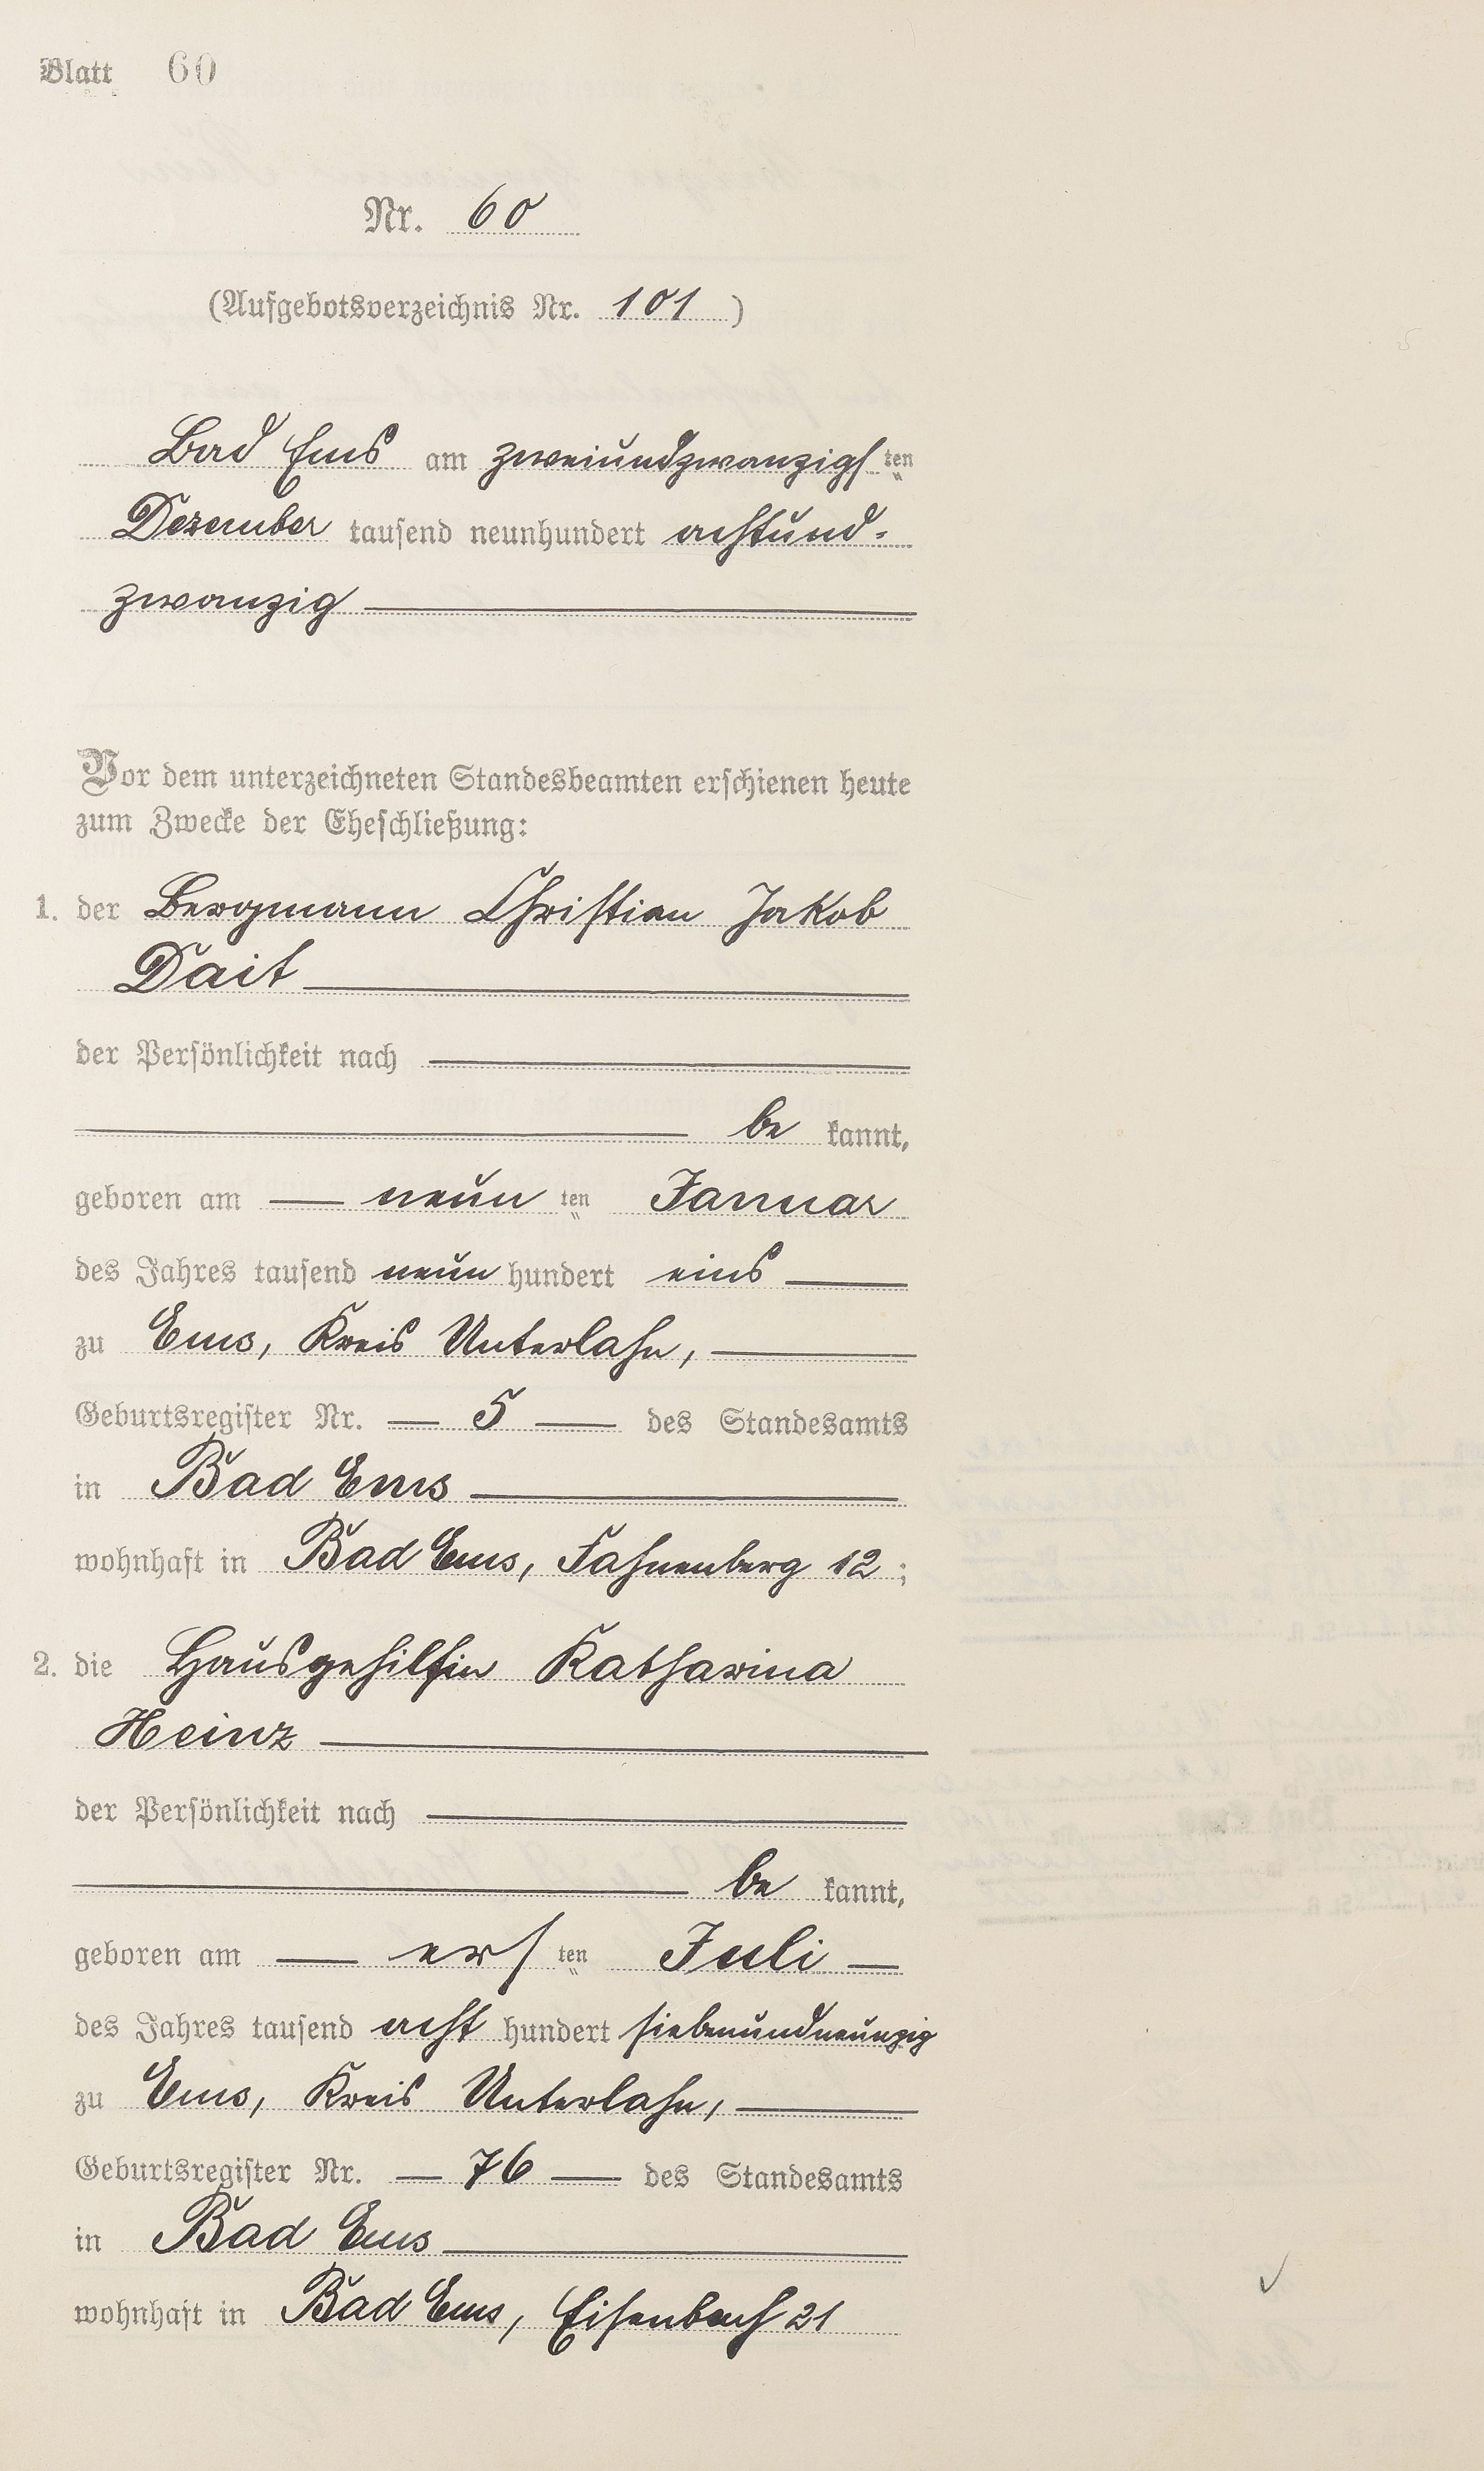 Blatt 60
Nr. 60
(Aufgebotsverzeichnis Nr. 101)
Bad Ems am zweiundzwanzigsten
Dezember tausend neunhundert achtund-
zwanzig
Vor dem unterzeichneten Standesbeamten erschienen heute
zum Zwecke der Eheschließung:
1. der Bergmann Christian Jakob
Dait
der Persönlichkeit nach
be kannt,
geboren am neun ten Januar
des Jahres tausend neun hundert eins
zu Ems, Kreis Unterlahn,
Geburtsregister Nr. 5 des Standesamts
in Bad Ems
wohnhaft in Bad Ems, Fahnenberg 12;
2. die Hausgehilfin Katharina
Heinz
der Persönlichkeit nach
be kannt,
geboren am ers ten Juli
des Jahres tausend acht hundert siebenundneunzig
zu Ems, Kreis Unterlahn,
Geburtsregister Nr. 76 des Standesamts
in Bad Ems
wohnhaft in Bad Ems, Eisenbach 21